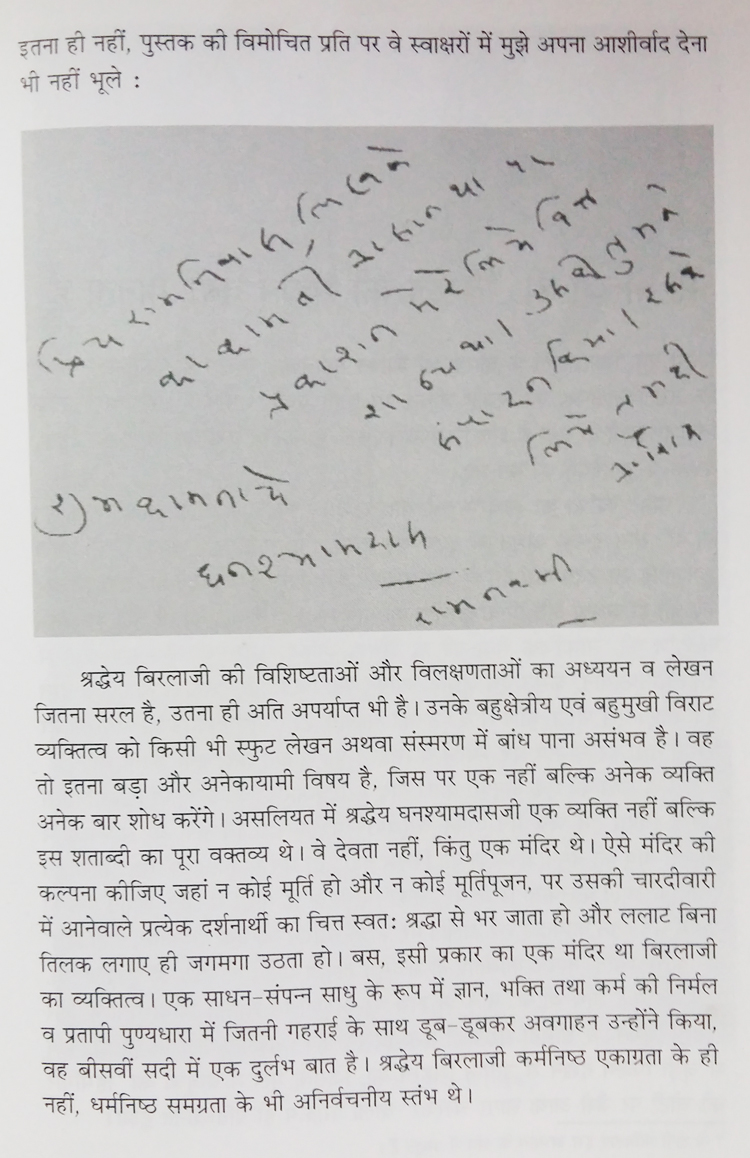 इतना ही नहीं, पुस्तक की विमोचित प्रति पर वे स्वाक्षरों में मुझे अपना आशीर्वाद देना
भी नहीं भूले :
प्रिय रामनिवास लिखने
का काम तो आसान था पर
प्रकाशन मेरे लिये
था। उसको तुमने
संपादन किया। इसके
लिये तुमको
शुभकामनायें
घनश्यामदास
रामनवमी
श्रद्धेय बिरलाजी की विशिष्टताओं और विलक्षणताओं का अध्ययन व लेखन
जितना सरल है, उतना ही अति अपर्याप्त भी है। उनके बहुक्षेत्रीय एवं बहुमुखी विराट
व्यक्तित्व को किसी भी स्फुट लेखन अथवा संस्मरण में बांध पाना असंभव है। वह
तो इतना बड़ा और अनेकायामी विषय है, जिस पर एक नहीं बल्कि अनेक व्यक्ति
अनेक बार शोध करेंगे। असलियत में श्रद्धेय घनश्यामदासजी एक व्यक्ति नहीं बल्कि
इस शताब्दी का पूरा वक्तव्य थे। वे देवता नहीं, किंतु एक मंदिर थे। ऐसे मंदिर की
कल्पना कीजिए जहां न कोई मूर्ति हो और न कोई मूर्तिपूजन, पर उसकी चारदीवारी
में आनेवाले प्रत्येक दर्शनार्थी का चित्त स्वतः श्रद्धा से भर जाता हो और ललाट बिना
तिलक लगाए ही जगमगा उठता हो। बस, इसी प्रकार का एक मंदिर था बिरलाजी
का व्यक्तित्व। एक साधन-संपन्न साधु के रूप में ज्ञान, भक्ति तथा कर्म की निर्मल
व प्रतापी पुण्यधारा में जितनी गहराई के साथ डूब-डूबकर अवगाहन उन्होंने किया,
वह बीसवीं सदी में एक दुर्लभ बात है। श्रद्धेय बिरलाजी कर्मनिष्ठ एकाग्रता के ही
नहीं, धर्मनिष्ठ समग्रता के भी अनिर्वचनीय स्तंभ थे।